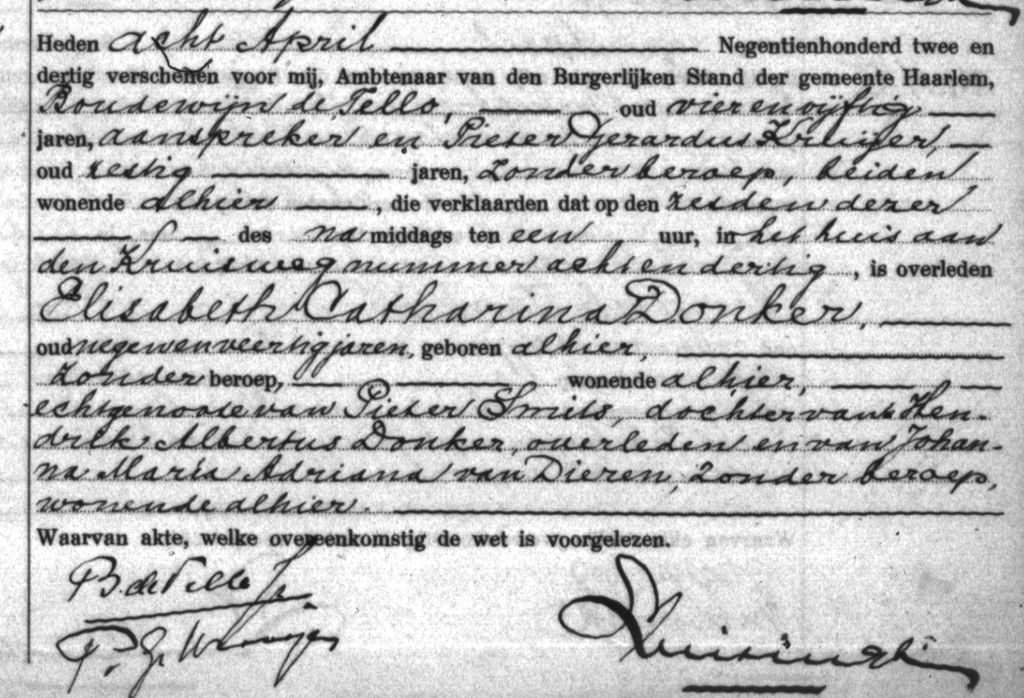 Heden acht April Negentienhonderd twee en
dertig verschenen voor mij, Ambtenaar van den Burgerlijken Stand der gemeente Haarlem,
Boudewijn de Tello, oud vier en vijftig
jaren, aanspreker en Pieter Gerardus Kruijer,
oud zestig jaren, zonder beroep, beiden
wonende alhier, die verklaarden dat op den zesden dezer
des namiddags ten een uur, in het huis aan
den Kruisweg nummer achtendertig, is overleden
Elisabeth Catharina Donker,
oud negenenveertig jaren, geboren alhier,
zonder beroep, wonende alhier,
echtgenoote van Pieter Smits, dochter van Hen-
drik Albertus Donker, overleden en van Johan-
na Maria Adriana van Dieren, zonder beroep,
wonende alhier.
Waarvan akte, welke overeenkomstig de wet is voorgelezen.
B. de Tello Jr
P. G.